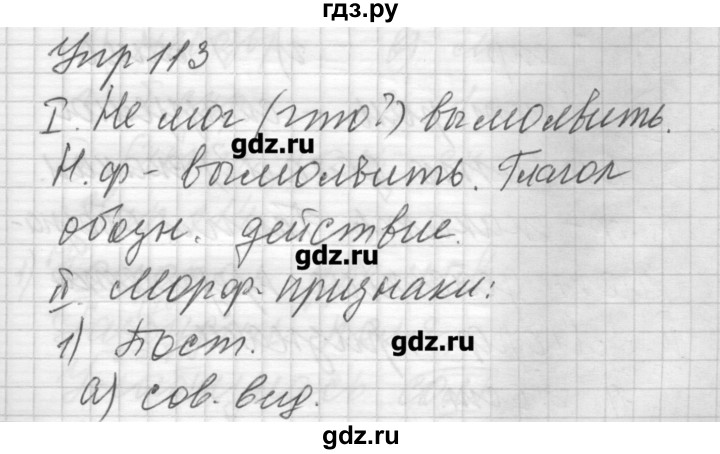 гдз.ру
Упр 113
I. Не мог (что?) вымолвить.
gdz.ru
Н.ф - вымолвить. Глагол
обозн. действие.
gdz.ru
II. Морф. признаки:
1) Пост.
gdz.ru
а) сов. вид.
gdz.ru